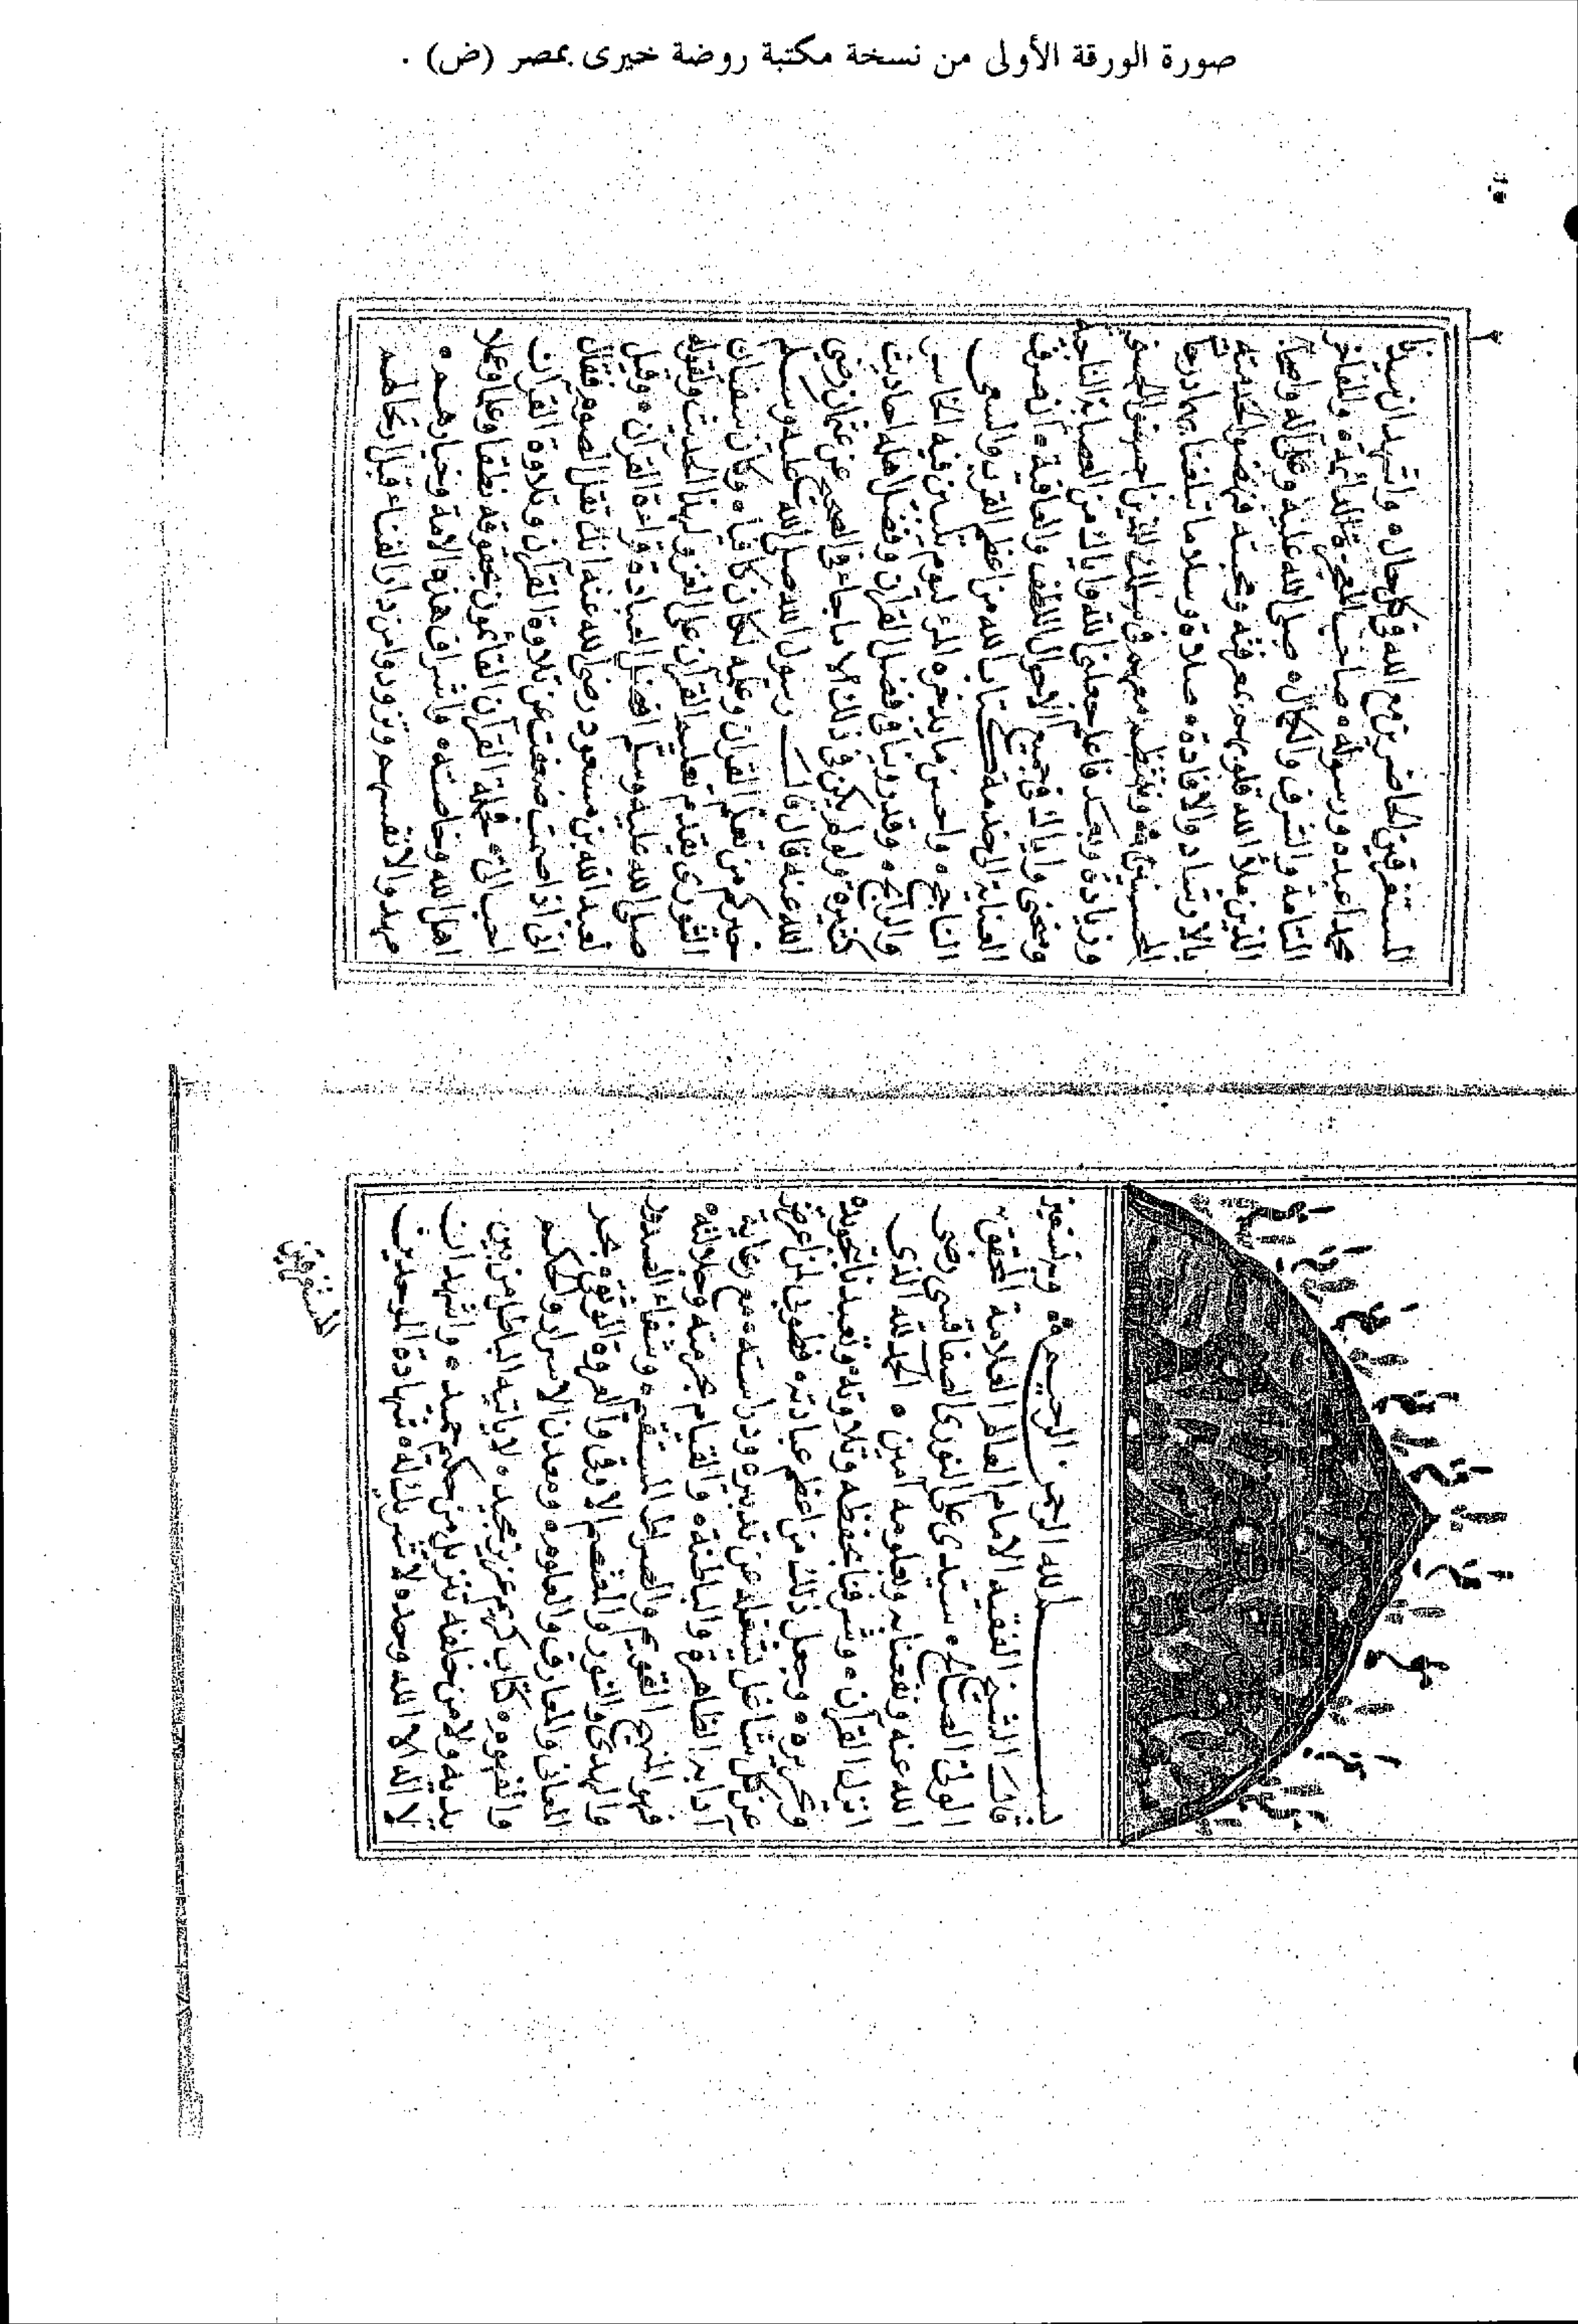 صورة الورقة الأولى من نسخة مكتبة روضة خيرى بمصر (ض) .
بسم الله الرحمن الرحيم وبه نستعين
قال الشيخ الفقيه الامام العالم العلامة المحقق
الولى الصالح سيدى على النورى الصفاقسى رضى
الله عنه ونفعنا به وبعلومه امين ه الحمد لله الذى
انزل القرآن ه وشرفنا بحفظه وتلاوته وتعبدنا بتجويده
وتحريره ه وجعل ذلك من اعظم عبادته ه فطوبى لمن اعرض
عن كل شاغل يشغله عن تدبره ودراسته ه مع رعاية
آدابه الظاهرة والباطنة ه والقيام بحرمته وجلالته ه
فهو المنهج القويم والصراط المستقيم ه وشفاء الصدور
والهدى والنور والمعتصم الاوقى والعروة الوثقى ه بحر
المعانى والمعارف والعلوم ه ومعدن الاسرار والحكم
والفهوم ه كتاب كريم عزيز مجيد ه لا ياتيه الباطل من بين
يديه ولا من خلفه تنزيل من حكيم حميد ه واشهد ان
لا اله الا الله وحده لا شريك له ه شهادة الموحدين
المستغرقين
المستغرقين الحاضرين مع الله فى كل حال ه واشهد ان سيدنا
محمدا عبده ورسوله ه صاحب المعجزة الدائمة ه والمفاخر
التامة والشرف والكمال ه صلى الله عليه وعلى آله واصحابه
الذين ملأ الله قلوبهم بمعرفته ومحبته فنهضوا لخدمته
بالارشاد والافادة ه صلاة وسلاما تبلغنا بهما درجة
المحسنين ه وننتظم معهم فى سلك الذين احسنوا الحسنى
وزيادة ه وبعد فاعلم جعلنى الله واياك من العصابة الناجية
ومنحنى واياك فى جميع الاحوال اللطف والعافية ه ان صرف
العناية الى خدمة كتاب الله من اعظم القرب والسعى
الناجح ه واحسن ما يدخره المرء ليوم يتبين فيه الخاسر
والرابح ه وقد روينا فى فضل القرآن وفضل اهله احاديث
كثيرة ه ولو لم يكن فى ذلك الا ما جاء فى الصحيح عن عثمان رضى
الله عنه قال قال رسول الله صلى الله عليه وسلم
خيركم من تعلم القرآن وعلمه لكان كافيا ه وكان سفيان
الثورى يقدم تعليم القرآن على الغزو لهذا الحديث ولقوله
صلى الله عليه وسلم افضل العبادة قراءة القرآن ه وقيل
لعبد الله بن مسعود رضى الله عنه انك تقل الصوم فقال
انى اذا صمت ضعفت عن تلاوة القرآن وتلاوة القرآن
احب الى ه فحملة القرآن القائمون بحقوقه نطقا وعلما وعملا
اهل الله وخاصته ه واشراف هذه الامة وخيارهم ه
مهدوا لانفسهم وتزودوا من دار الفناء قبل ارتحالهم